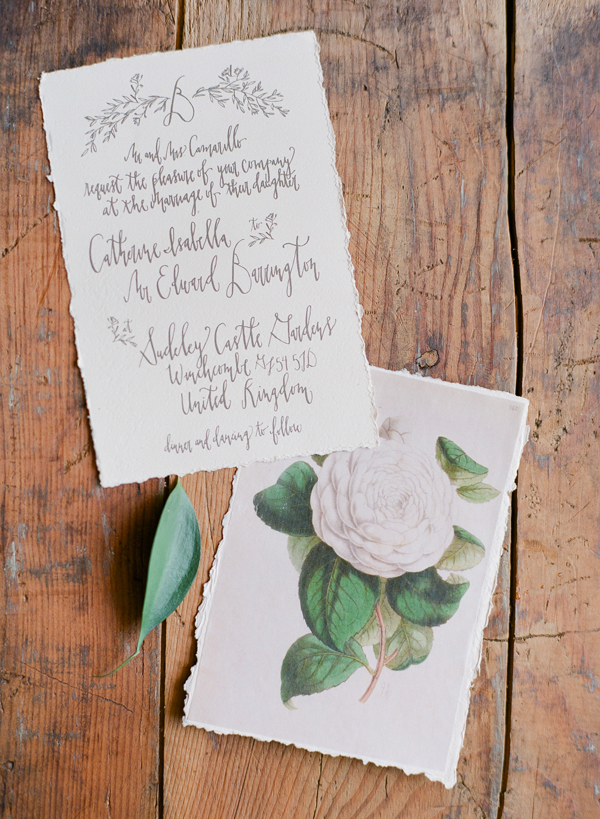 B
Mr and Mrs Camarillo
request the pleasure of your company
at the marriage of their daughter
Catherine Isabella to
Mr Edward Barrington
at
Sudeley Castle Gardens
Winchcombe GL54 5JD
United Kingdom
dinner and dancing to follow